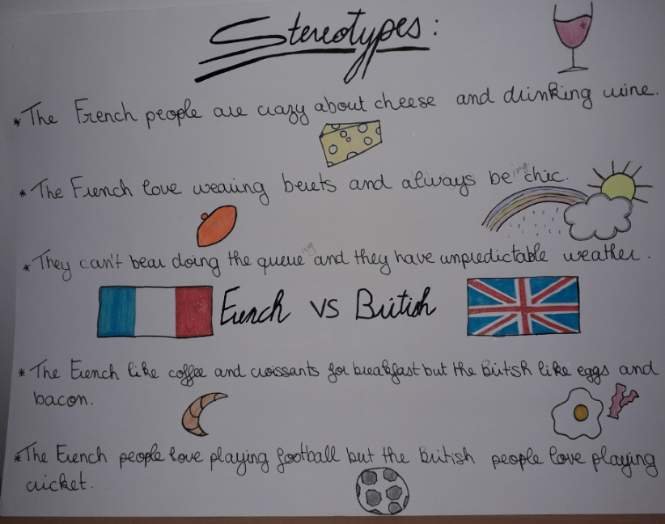 Stereotypes:
* The French people are crazy about cheese and drinking wine.
* The French love wearing berets and always be chic.
* They can't bear doing the queue and they have unpredictable weather.
French VS British
* The French like coffee and croissants for breakfast but the Britsh like eggs and
bacon.
* The French people love playing football but the British people love playing
cricket.